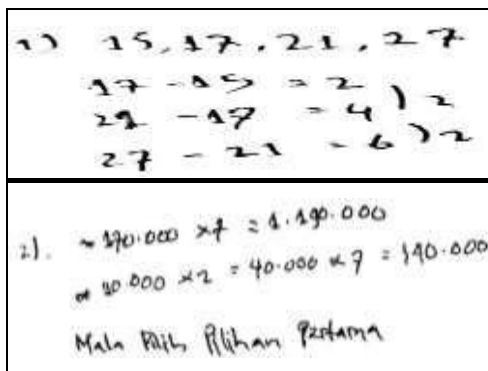 1) 15, 17, 21, 27
17 - 15 = 2
21 - 17 = 4 ) 2
27 - 21 = 6 ) 2
2). = 170.000 x 7 = 1.190.000
= 10.000 x 2 = 40.000 x 7 = 140.000
Maka Pilih Pilihan Pertama